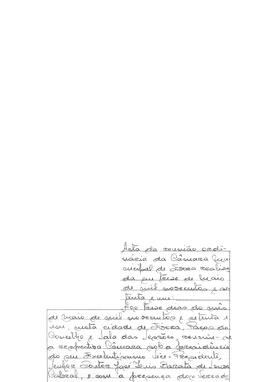 Acta da reunião ordi-
nária da Câmara Mu-
nicipal de Évora realiza
da em treze de Maio
de mil novecentos e se
tenta e um.
Aos treze dias do mês
de Maio de mil novecentos e setenta e
um, nesta cidade de Évora, Paços do
Concelho e Sala das Sessões, reuniu-se
a respectiva Câmara sob a presidência
do seu Excelentíssimo Vice-Presidente,
José Luis de Sousa
Cabral, e com a presença dos Verea